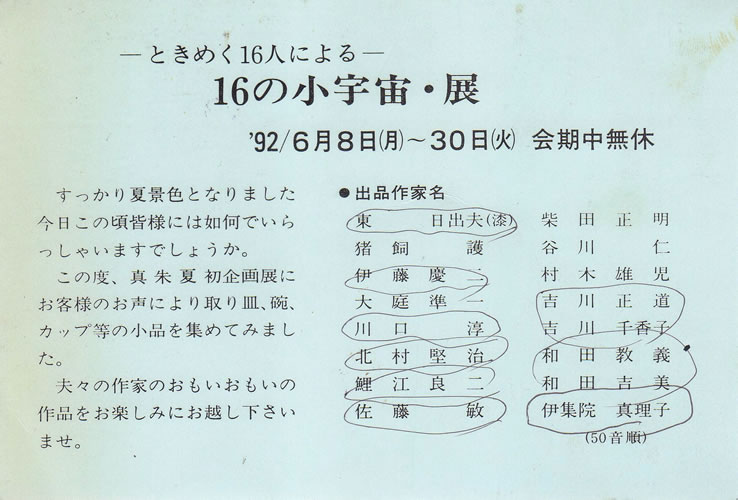 —ときめく16人による—
16の小宇宙・展
'92/6月8日(月)〜30日(火) 会期中無休
すっかり夏景色となりました
今日この頃皆様には如何でいら
っしゃいますでしょうか。
この度、真朱夏初企画展に
お客様のお声により取り皿、碗、
カップ等の小品を集めてみまし
た。
夫々の作家のおもいおもいの
作品をお楽しみにお越し下さい
ませ。
●出品作家名
東 日出夫(漆)
猪飼 護
伊藤慶二
大庭準一
川口 淳
北村堅治
鯉江良二
佐藤 敏
柴田正明
谷川 仁
村木雄児
吉川正道
吉川千香子
和田教義
和田吉美
伊集院 真理子
(50音順)